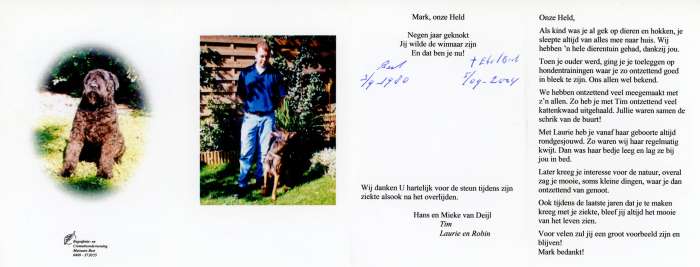 Begrafenis- en
Crematieonderneming
Mark, onze Held
Negen jaar geknokt
Jij wilde de winnaar zijn
En dat ben je nu!
Best
† Eke Best
Wij danken U hartelijk voor de steun tijdens zijn
ziekte alsook na het overlijden.
Hans en Mieke van Deijl
Tim
Laurie en Robin
Onze Held,
Als kind was je al gek op dieren en hokken, je
sleepte altijd van alles mee naar huis. Wij
hebben 'n hele dierentuin gehad, dankzij jou.
Toen je ouder werd, ging je je toeleggen op
hondentrainingen waar je zo ontzettend goed
in bleek te zijn. Ons allen wel bekend.
We hebben ontzettend veel meegemaakt met
z'n allen. Zo heb je met Tim ontzettend veel
kattenkwaad uitgehaald. Jullie waren samen de
schrik van de buurt!
Met Laurie heb je vanaf haar geboorte altijd
rondgesjouwd. Zo waren wij haar regelmatig
kwijt. Dan was haar bedje leeg en lag ze bij
jou in bed.
Later kreeg je interesse voor de natuur, overal
zag je mooie, soms kleine dingen, waar je dan
ontzettend van genoot.
Ook tijdens de laatste jaren dat je te maken
kreeg met je ziekte, bleef jij altijd het mooie
van het leven zien.
Voor velen zul jij een groot voorbeeld zijn en
blijven!
Mark bedankt!